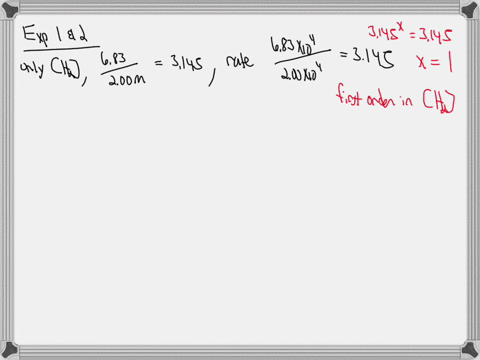 Exp 1 & 2
only [H2], 6.83 / 2.00 m = 3.145, rate 6.83 x 10^4 / 2.00 x 10^4 = 3.145
3.145^x = 3.145
x = 1
first order in [H2]